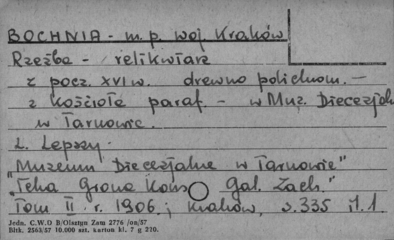 BOCHNIA - m.p. woj. Kraków
Rzeźba - relikwiarz
z pocz. XVI w. drewno polichrom. -
z kościoła paraf. - w Muz. Diecezjal
w Tarnowie.
L. Lepszy.
"Muzeum Diecezjalne w Tarnowie"
"Teka Grona Kons Gal. Zach."
Tom II. r. 1906.; Kraków, s. 335 il. 1.
Jedn. C.W.O B/Olsztyn Zam 2776 /on/57
Bltk. 2563/57 10.000 szt. karton kl. 7 g 220.